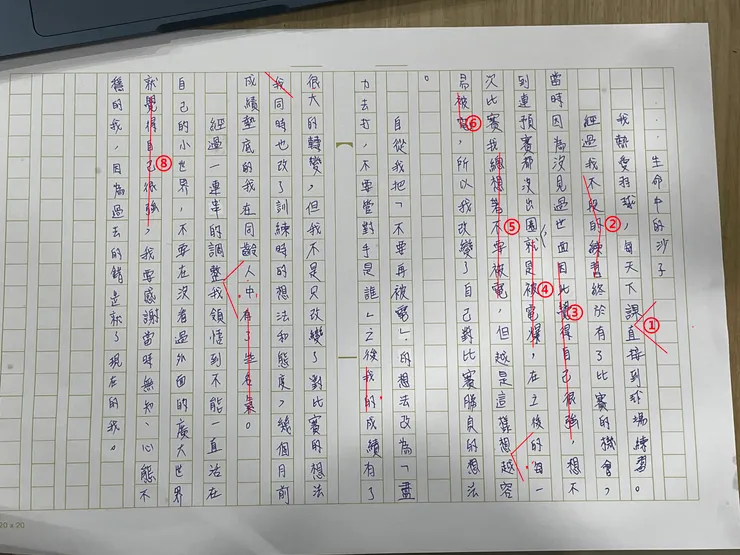 生命中的沙子
我熱愛羽球，每天下課直接到球場練習。
經過我不段的練習終於有了比賽的機會，
當時因為沒見過世面因此覺得自己很強，想不
到連預賽都沒出圍就是被電爆，在之後的每一
次比賽我總想著不要被電，但越是這樣想越容
易被電，所以我改變了自己對比賽勝負的想法
。
自從我把「不要再被電」的想法改為「盡
力去打，不要管對手是誰」之後我的成績有了
很大的轉變，但我不是只改變了對比賽的想法
我同時也改了訓練時的想法和態度，幾個月前
成績墊底的我在同齡人中有了些名氣。
經過一連串的調整我領悟到不能一直活在
自己的小世界，不要在沒看過外面的廣大世界
就覺得自己很強，我要感謝當時無知、心態不
穩的我，因為過去的錯造就了現在的我。
①
②
③
④
⑤
⑥
⑧
20 x 20